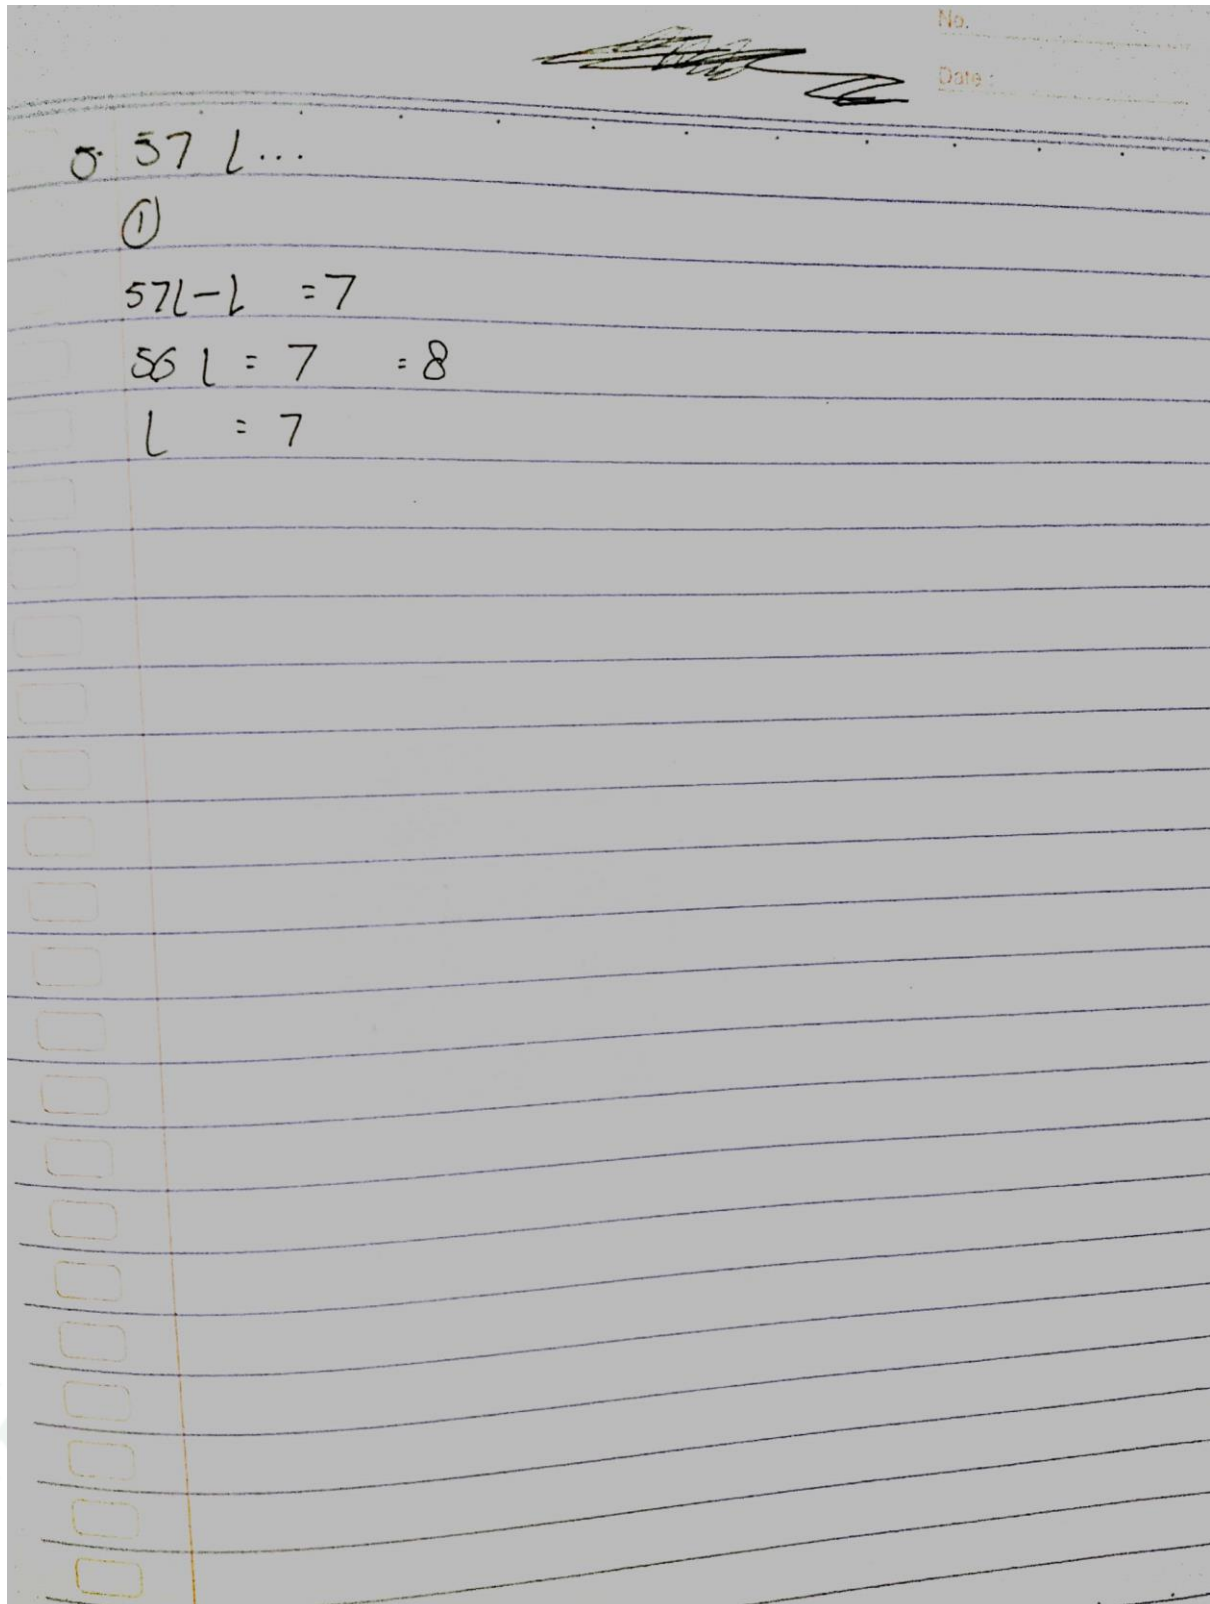 No.
Date :
5. 57 l ...
①
57l - l = 7
56 l = 7 = 8
l = 7